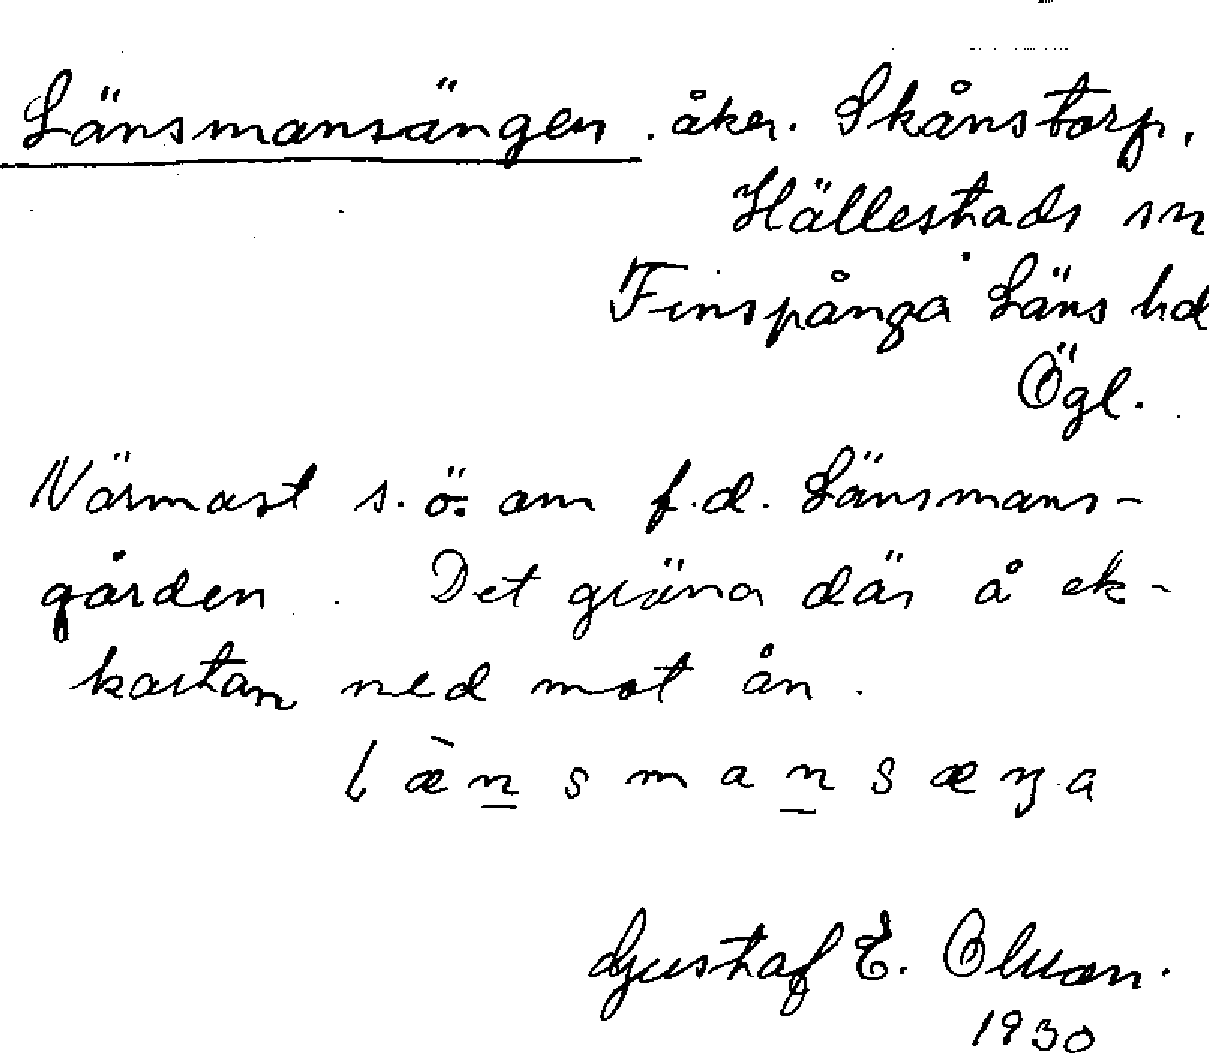 Länsmansängen. åker. Skånstorp,
Hällestads sn
Finspånga Läns hd
Ögl.
Närmast s.ö. om f.d. Länsmans-
gården. Det gräna där å ek-
kastan ned mot ån.
læ̀n̲sman̲sæŋa
Gustaf E. Olson.
1930